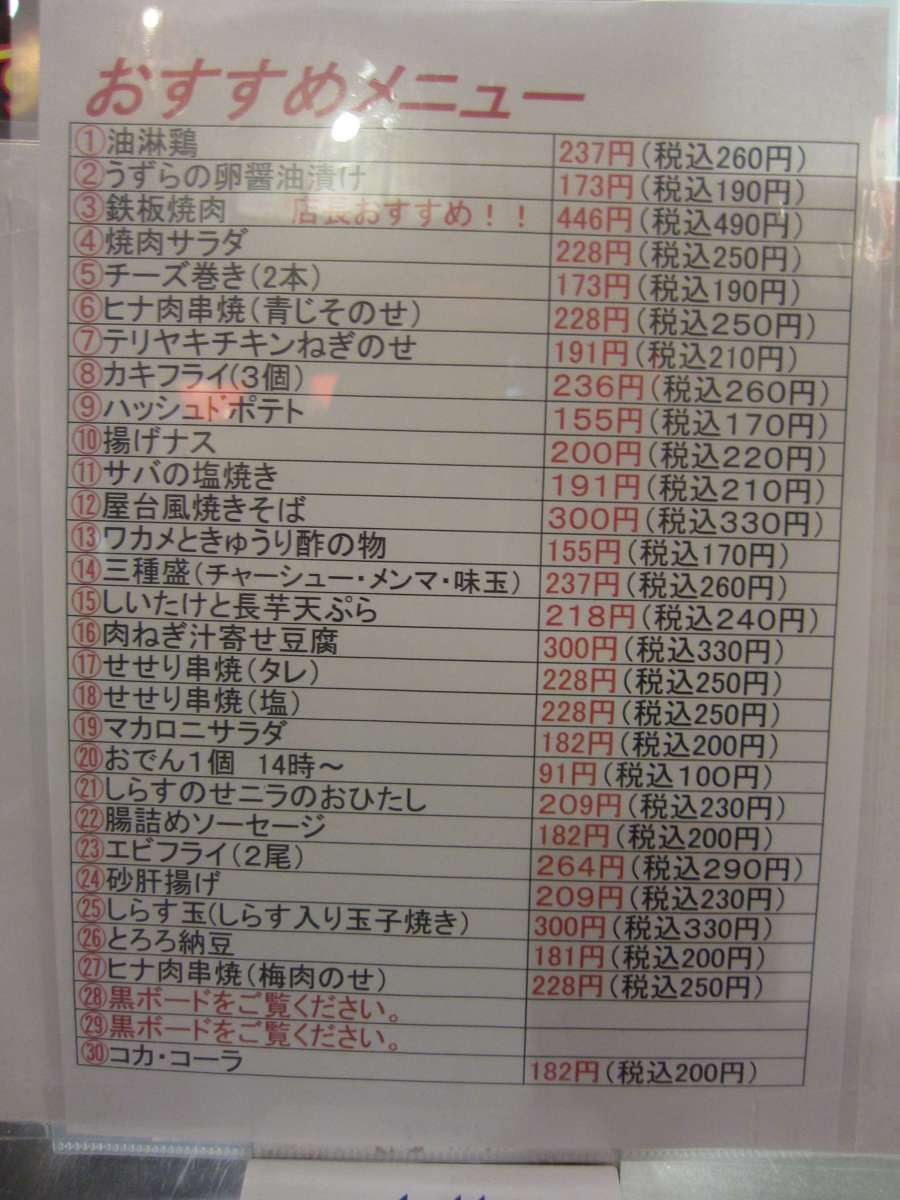 おすすめメニュー
①油淋鶏 237円(税込260円)
②うずらの卵醤油漬け 173円(税込190円)
③鉄板焼肉 店長おすすめ！！ 446円(税込490円)
④焼肉サラダ 228円(税込250円)
⑤チーズ巻き(2本) 173円(税込190円)
⑥ヒナ肉串焼(青じそのせ) 228円(税込250円)
⑦テリヤキチキンねぎのせ 191円(税込210円)
⑧カキフライ(3個) 236円(税込260円)
⑨ハッシュドポテト 155円(税込170円)
⑩揚げナス 200円(税込220円)
⑪サバの塩焼き 191円(税込210円)
⑫屋台風焼きそば 300円(税込330円)
⑬ワカメときゅうり酢の物 155円(税込170円)
⑭三種盛(チャーシュー・メンマ・味玉) 237円(税込260円)
⑮しいたけと長芋天ぷら 218円(税込240円)
⑯肉ねぎ汁寄せ豆腐 300円(税込330円)
⑰せせり串焼(タレ) 228円(税込250円)
⑱せせり串焼(塩) 228円(税込250円)
⑲マカロニサラダ 182円(税込200円)
⑳おでん1個 14時～ 91円(税込100円)
㉑しらすのせニラのおひたし 209円(税込230円)
㉒腸詰めソーセージ 182円(税込200円)
㉓エビフライ(2尾) 264円(税込290円)
㉔砂肝揚げ 209円(税込230円)
㉕しらす玉(しらす入り玉子焼き) 300円(税込330円)
㉖とろろ納豆 181円(税込200円)
㉗ヒナ肉串焼(梅肉のせ) 228円(税込250円)
㉘黒ボードをご覧ください。
㉙黒ボードをご覧ください。
㉚コカ・コーラ 182円(税込200円)